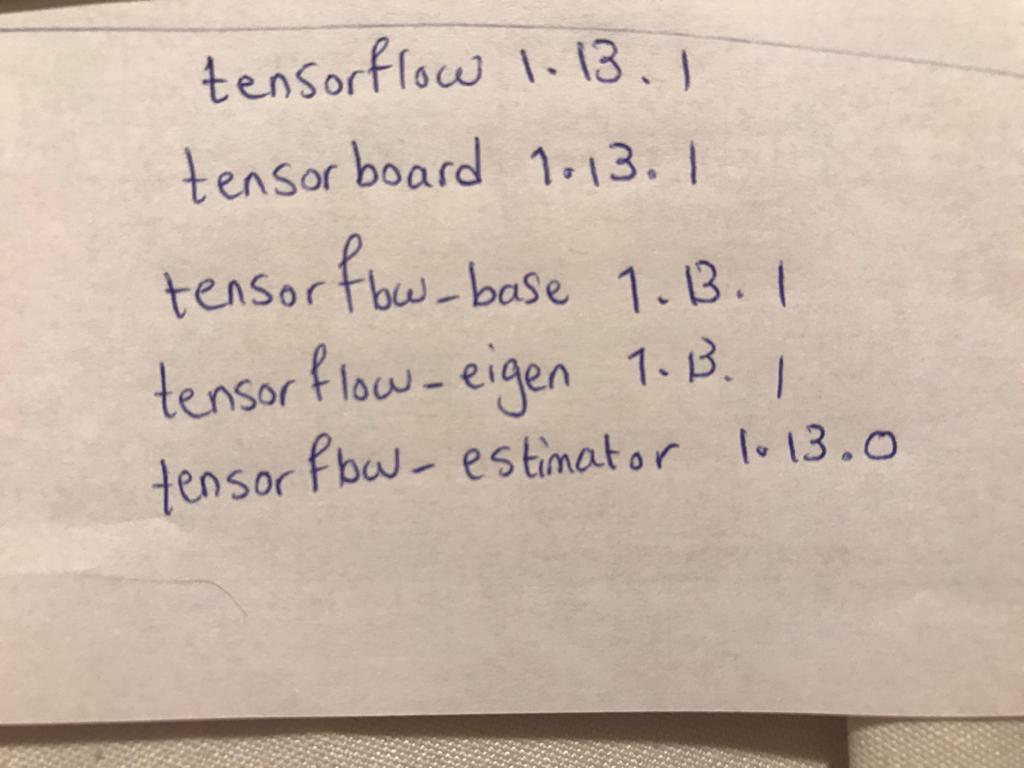 tensorflow 1.13.1
tensorboard 1.13.1
tensorflow-base 1.13.1
tensorflow-eigen 1.13.1
tensorflow-estimator 1.13.0